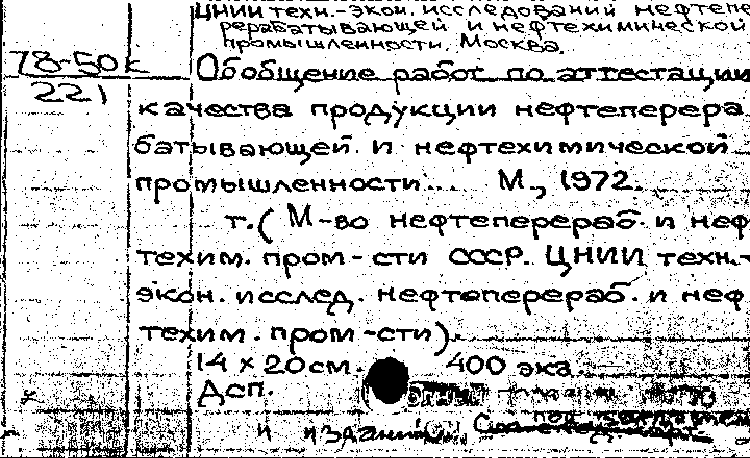 ЦНИИ техн.-экон. исследований нефтепе
рерабатывающей и нефтехимической
промышленности. Москва.
78-50к
221
Обобщение работ по аттестации
качества продукции нефтеперера
батывающей и нефтехимической
промышленности... М., 1972.
т. (М-во нефтеперераб. и неф
техим. пром-сти СССР. ЦНИИ техн.-
экон. исслед. нефтеперераб. и неф
техим. пром-сти).
14 x 20 см. 400 экз.
Дсп.
и издании